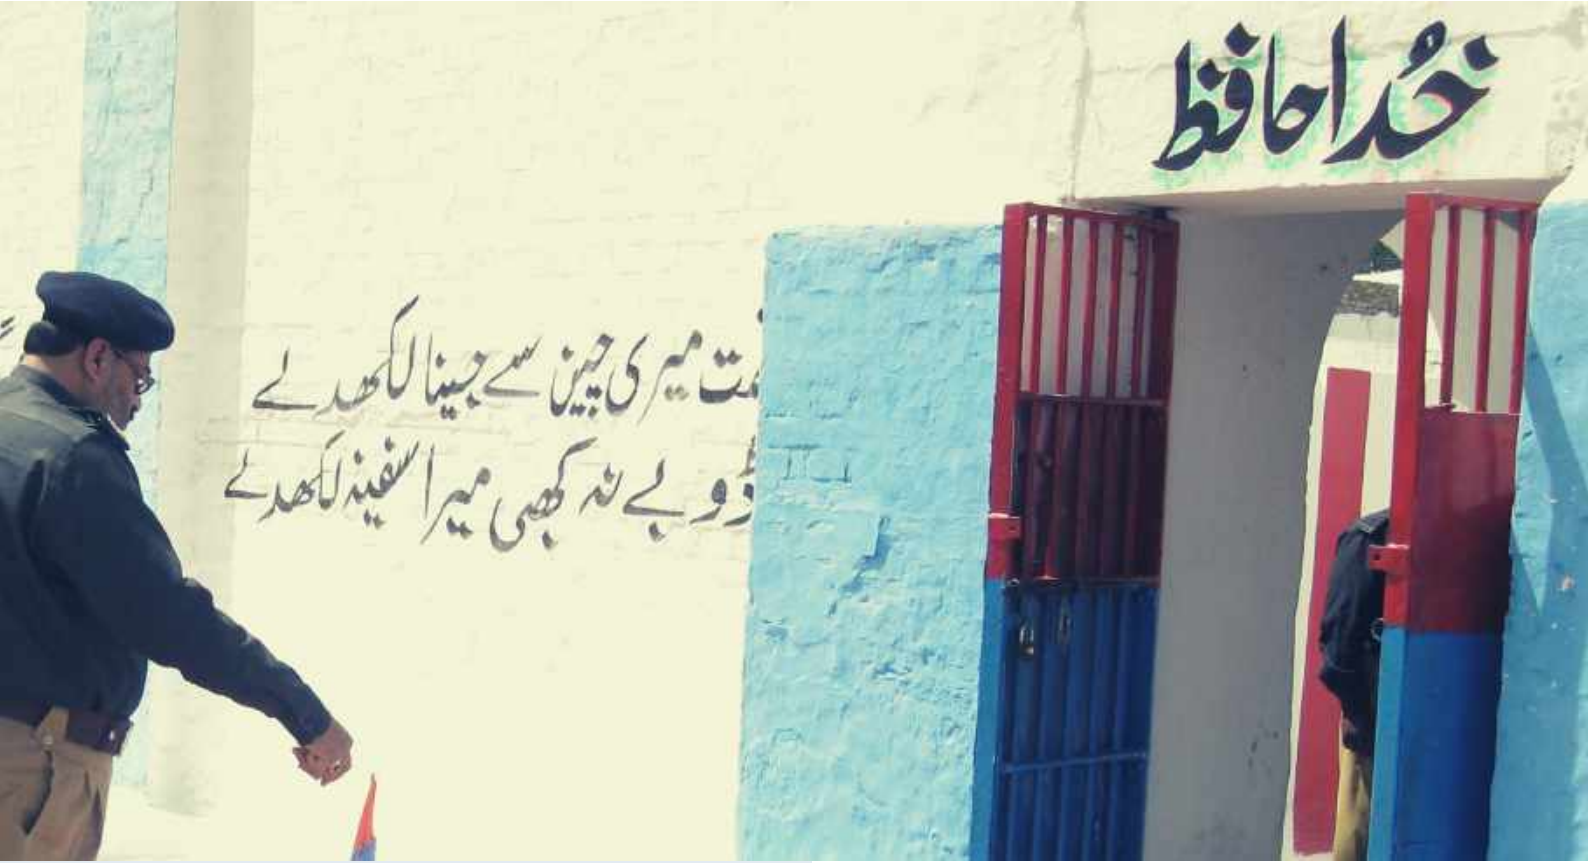 خُدا حافظ
میری جبین سے جینا لکھدے
ڈوبے نہ کبھی میرا سفینہ لکھدے